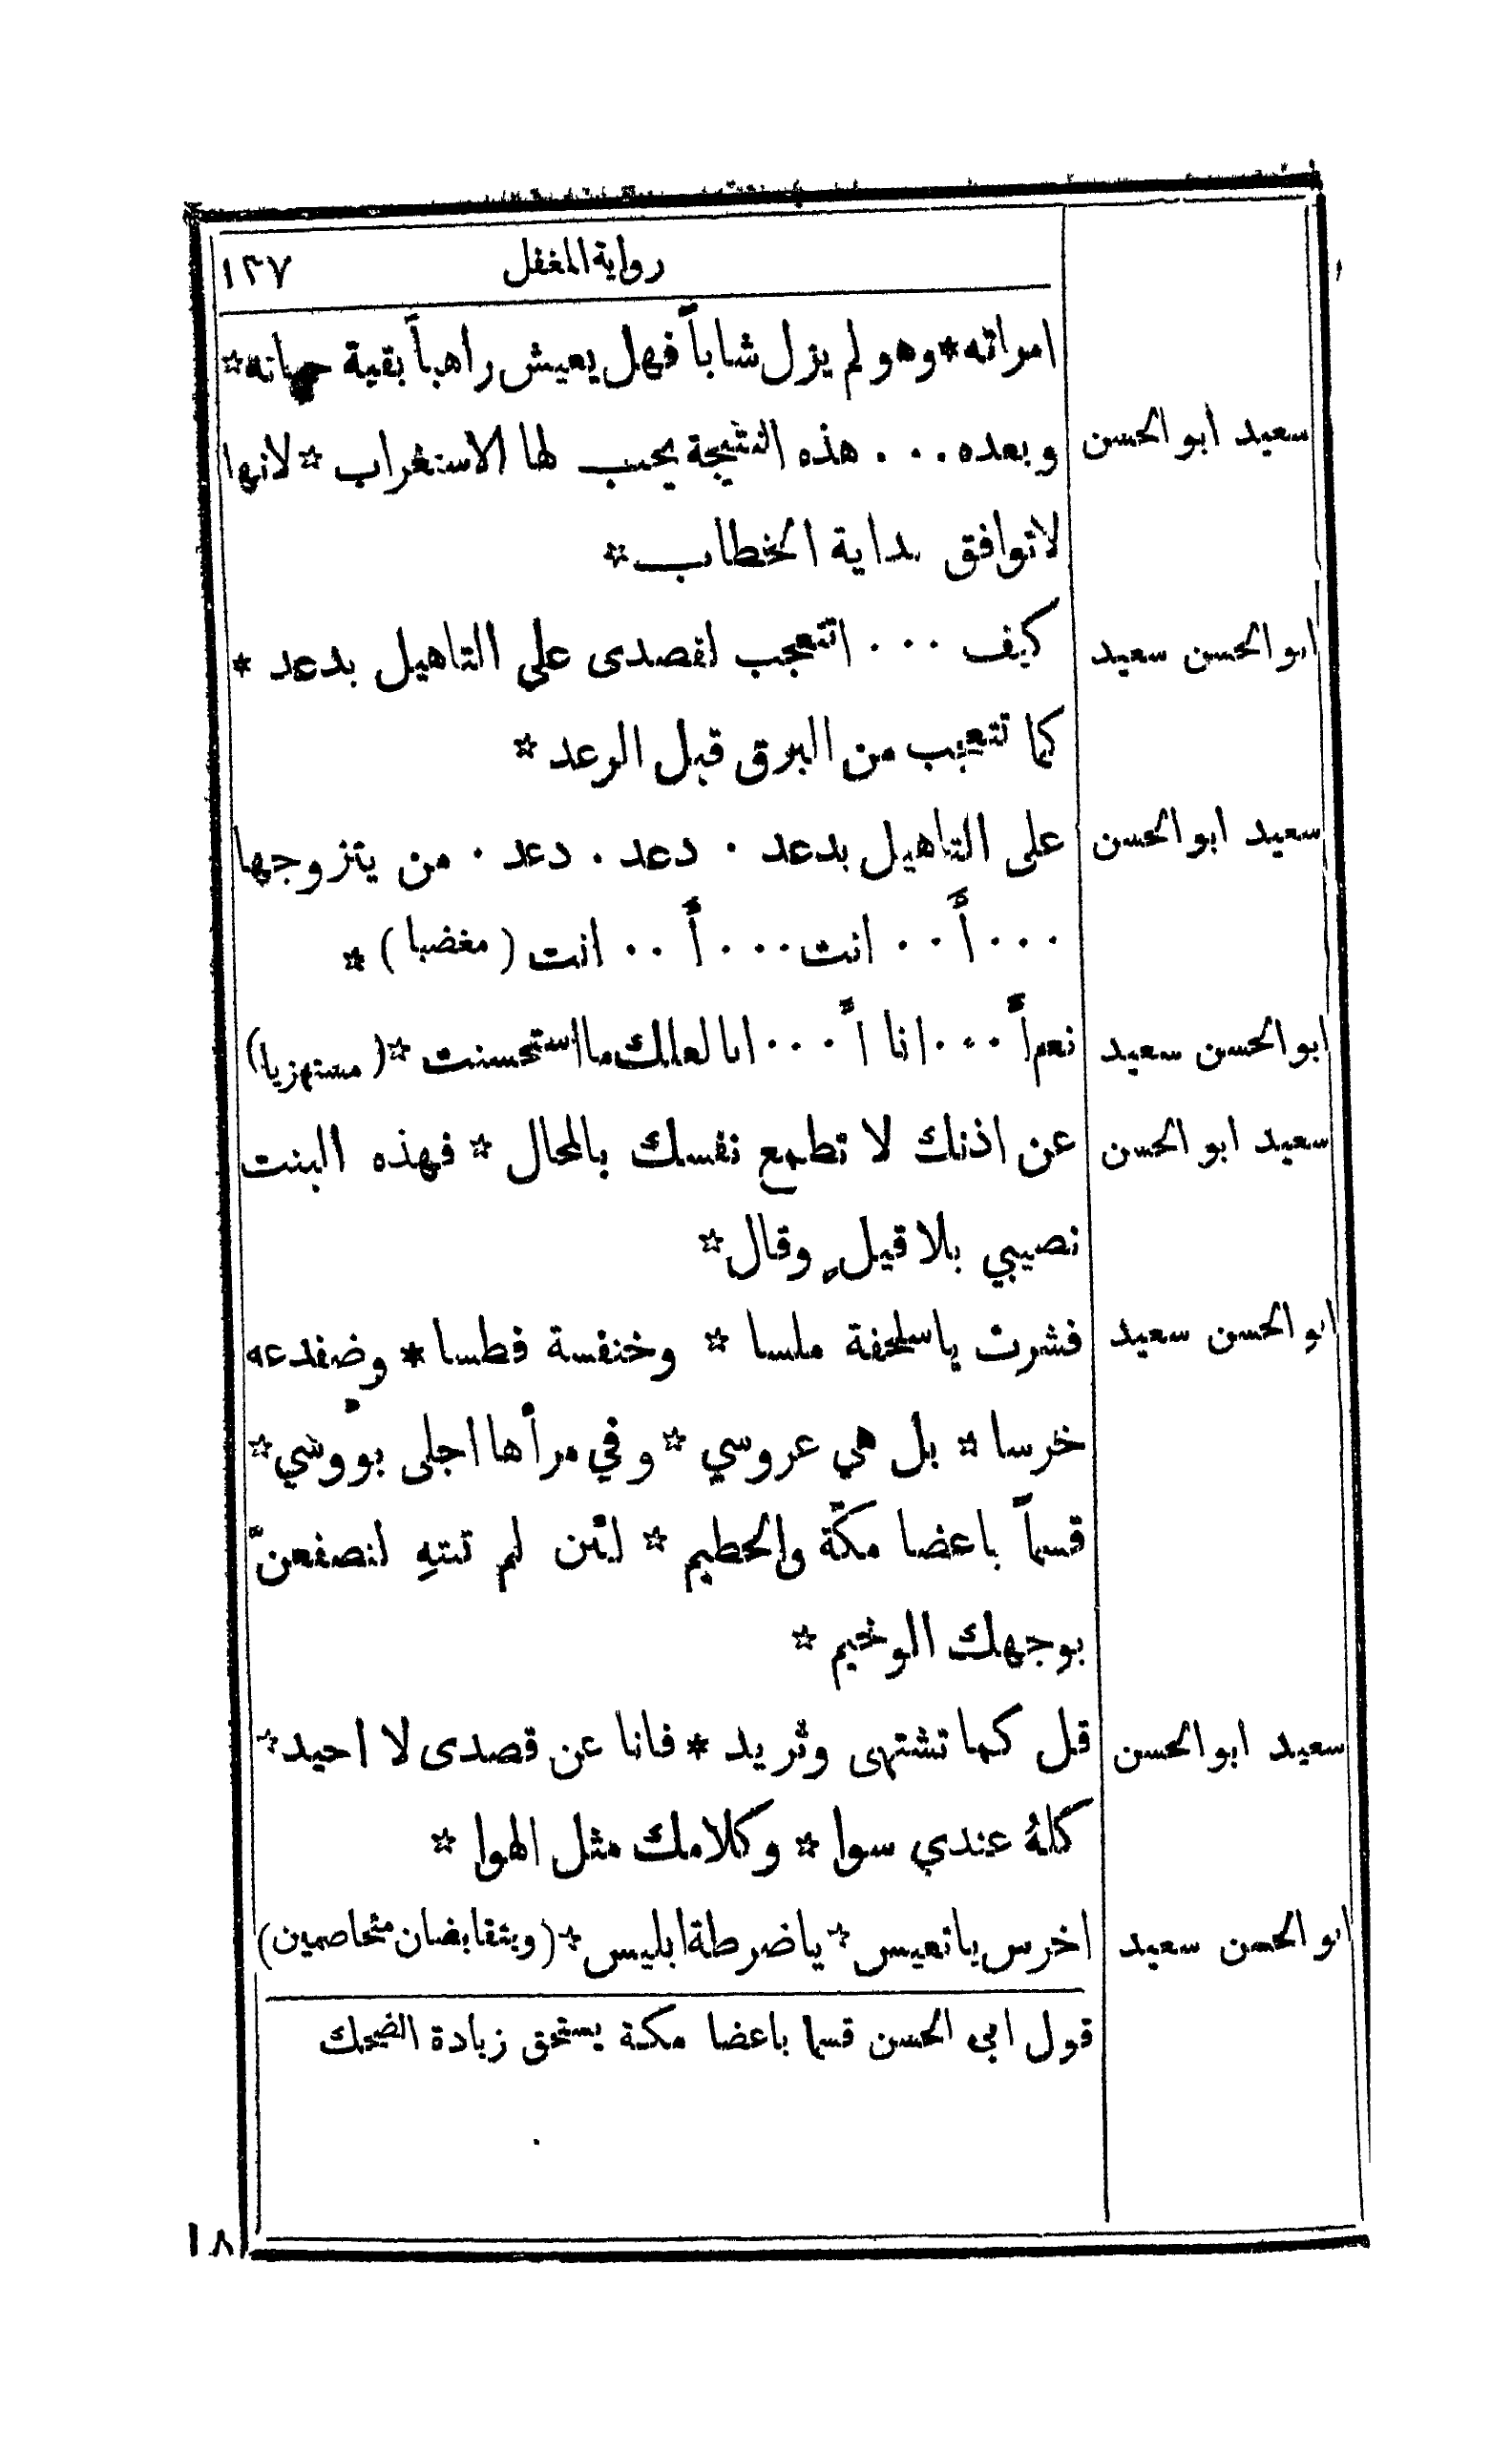 رواية المغفل ١٣٧
امراته * وهو لم يزل شاباً فهل يعيش راهباً بقية حياته *
سعيد ابو الحسن وبعده . . . هذه النتيجة يجب لها الاستغراب * لانها
لاتوافق بداية الخطاب *
ابو الحسن سعيد كيف . . . اتتعجب لقصدى على التاهيل بدعد *
كما تتعجب من البرق قبل الرعد *
سعيد ابو الحسن على التاهيل بدعد . دعد . دعد . من يتزوجها
. . . أً . . انت . . . أً . . انت ( مغضبا ) *
ابو الحسن سعيد نعم أً . . . انا أً . . . انا لعلك ما استحسنت * ( مستهزيا )
سعيد ابو الحسن عن اذنك لا تطمع نفسك بالمحال * فهذه البنت
نصيبي بلا قيلٍ وقال *
ابو الحسن سعيد فشرت يا سلحفة ملسا * وخنفسة فطسا * وضفدعه
خرسا * بل هي عروسي * وفي مرأها اجلى بووسي *
قسماً باعضا مكّة والحطيم * لئن لم تنتهِ لنصفعنّ
بوجهك الوخيم *
سعيد ابو الحسن قل كما تشتهى وتريد * فانا عن قصدى لا احيد *
كلهُ عندي سوا * وكلامك مثل الهوا *
ابو الحسن سعيد اخرس يا تعيس * يا ضرطة ابليس * ( ويتقابضان متخاصمين )
قول ابى الحسن قسما باعضا مكة يستحق زيادة الضحك
١٨